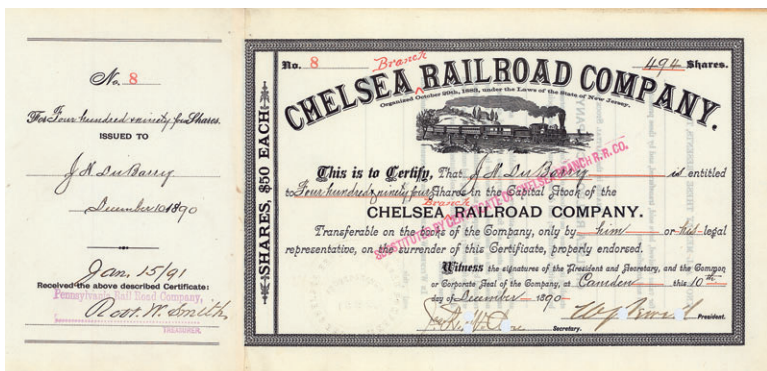 No. 8
For Four hundred ninety four Shares.
ISSUED TO
J N DuBarry
December 10 1890
Jan. 15/91
Received the above described Certificate:
Pennsylvania Rail Road Company,
Robt. W. Smith
TREASURER.
SHARES, $50 EACH
No. 8
494 Shares.
Branch
CHELSEA RAILROAD COMPANY.
Organized October 20th, 1883, under the Laws of the State of New Jersey.
This is to Certify, That J N DuBarry is entitled
to Four hundred ninety four Shares in the Capital Stock of the
Branch
CHELSEA RAILROAD COMPANY.
SUBSTITUTED BY CERTIFICATE OF CHELSEA BRANCH R.R. CO.
Transferable on the books of the Company, only by him or his legal
representative, on the surrender of this Certificate, properly endorsed.
Witness the signatures of the President and Secretary, and the Common
or Corporate Seal of the Company, at Camden this 10th
day of December 1890
Secretary.
President.